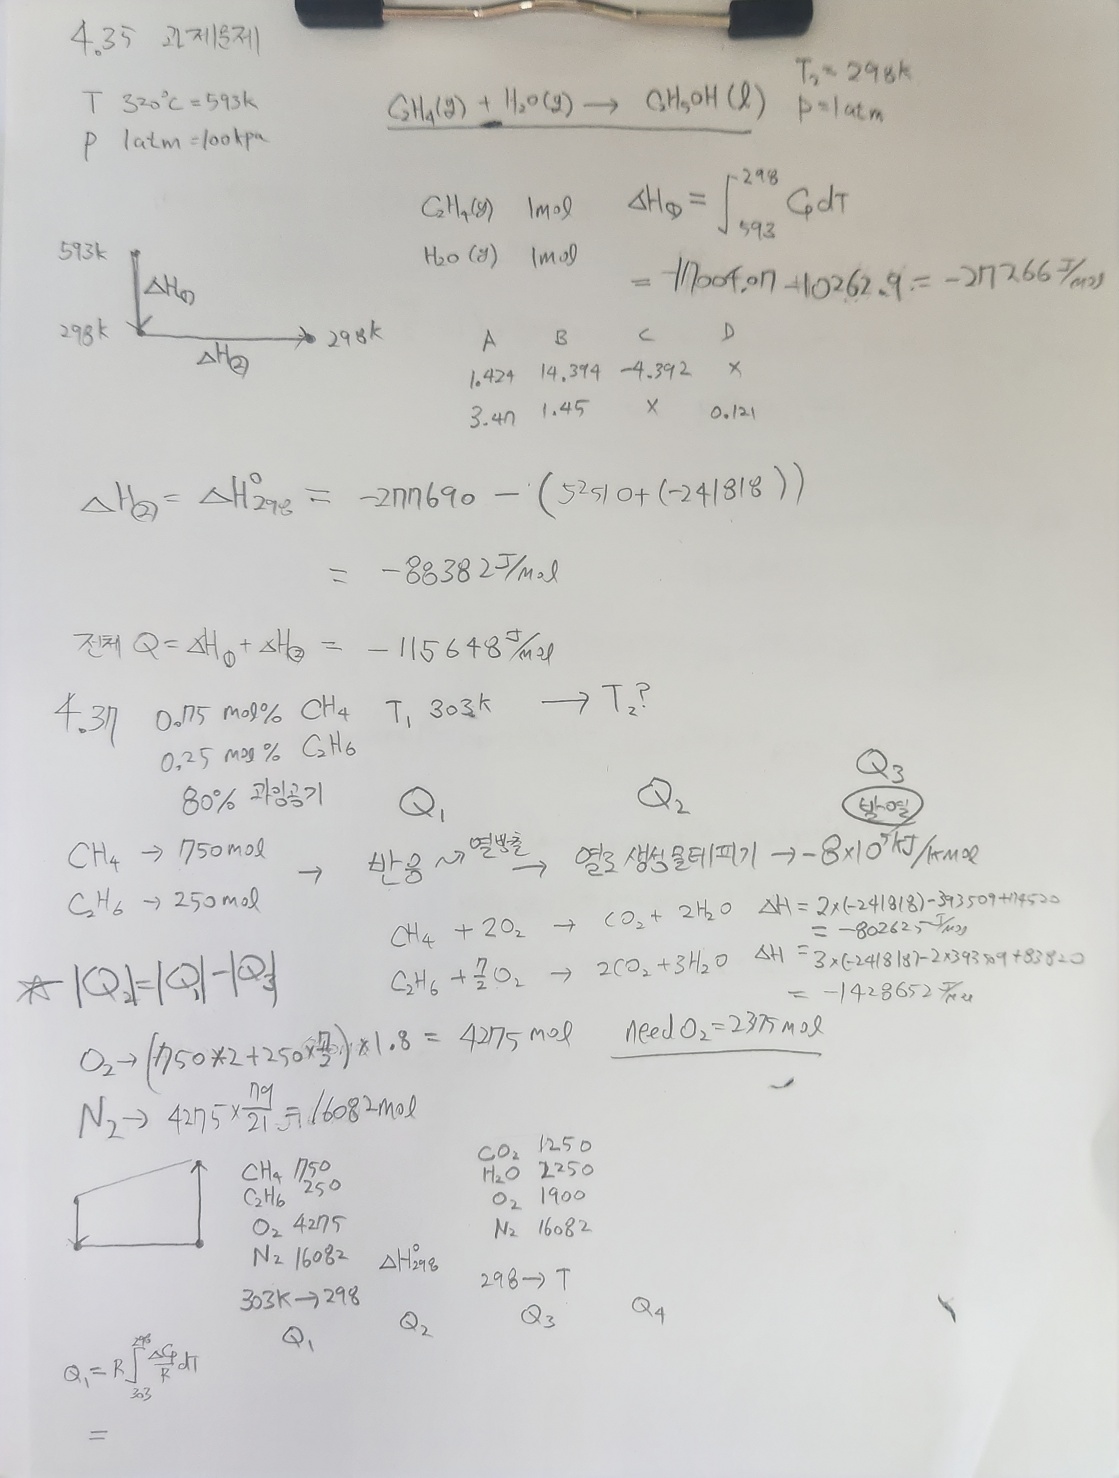 4.35 과제문제
T 320°C = 593k
P 1atm = 100kpa
C2H4(g) + H2O(g) → C2H5OH(l)
T2 = 298k
P = 1atm
C2H4(g) 1mol
H2O(g) 1mol
ΔH① = ∫593^298 Cp dT
= -17004.07 -10262.9 = -27266 J/mol
593k
ΔH①
298k
ΔH②
298k
A B C D
1.424 14.394 -4.392 x
3.47 1.45 x 0.121
ΔH② = ΔH°298 = -277690 - (52510 + (-241818))
= -88382 J/mol
전체 Q = ΔH① + ΔH② = -115648 J/mol
4.37 0.75 mol% CH4 T1 303k → T2?
0.25 mol% C2H6
80% 과잉공기
Q1 Q2 Q3
발열
CH4 → 750mol
C2H6 → 250mol
→ 반응 열방출 → 열로 생성물데피기 → -8×10^5 kJ/kmol
CH4 + 2O2 → CO2 + 2H2O ΔH = 2×(-241818) - 393509 + 74520
= -802625 J/mol
C2H6 + 7/2 O2 → 2CO2 + 3H2O ΔH = 3×(-241818) - 2×393509 + 83820
= -1428652 J/mol
|Q2| = |Q1| - |Q3|
O2 → (750*2 + 250*7/2) * 1.8 = 4275 mol
need O2 = 2375 mol
N2 → 4275 × 79/21 = 16082 mol
CH4 750
C2H6 250
O2 4275
N2 16082
303K → 298
Q1
ΔH°298
Q2
CO2 1250
H2O 2250
O2 1900
N2 16082
298 → T
Q3
Q4
Q1 = R ∫303^298 ΔCp/R dT
=